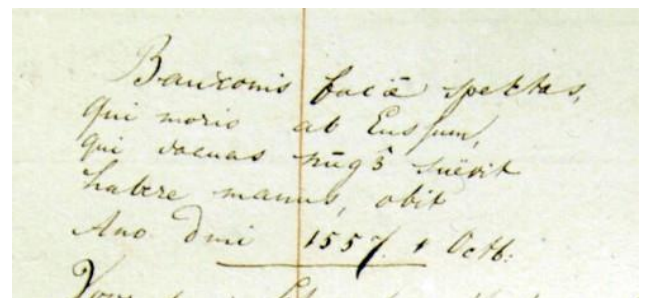 Bauxonis faciē spektas,
qui moris ab Ensſum,
qui vacuas nūqȝ suëvit
habere manus, obit
Ano Dmi 1557. 1 Octb: